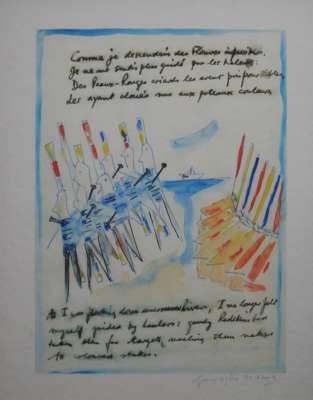 Comme je descendais des Fleuves impassibles,
Je ne me sentis plus guidé par les haleurs:
Des Peaux-Rouges criards les avaient pris pour cibles
Les ayant cloués nus aux poteaux couleurs
As I was floating down Rivers, I no longer felt
myself guided by haulers: gaudy Redskins had
taken them for targets, nailing them naked
to coloured stakes.